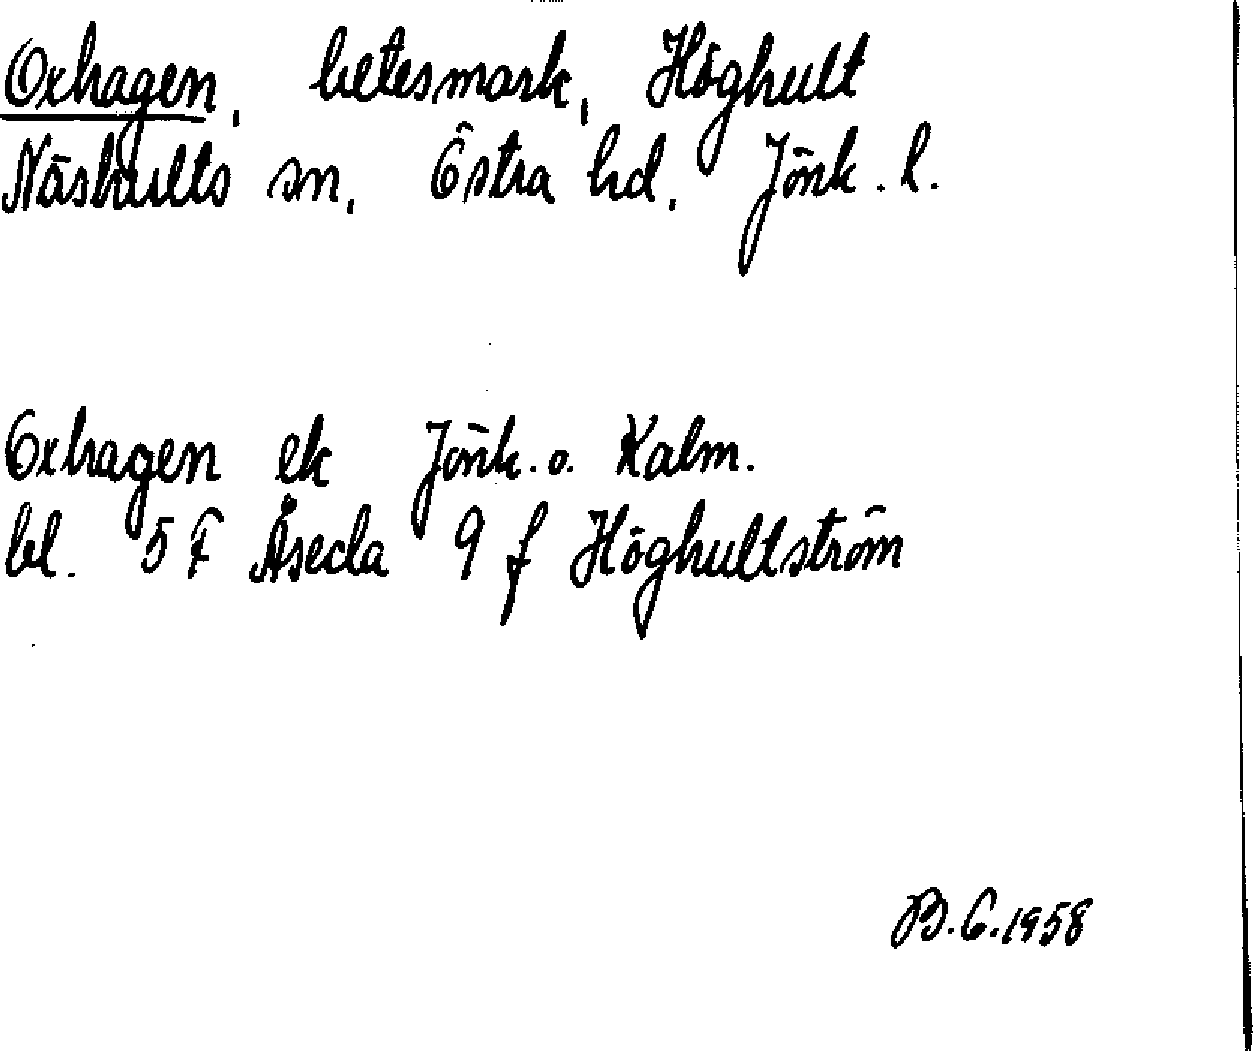 Oxhagen, betesmark, Höghult
Näshults sn, Östra hd, Jönk. l.
Oxhagen ek Jönk. o. Kalm.
bl. 5 F Åseda 9 f Höghultström
B.G. 1958